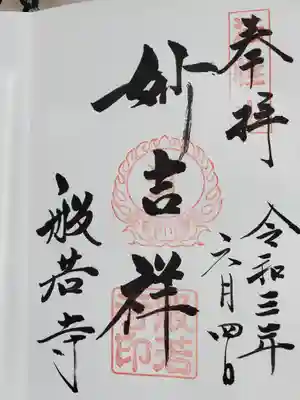 奉拝
令和三年
六月四日
妙吉祥
般若寺